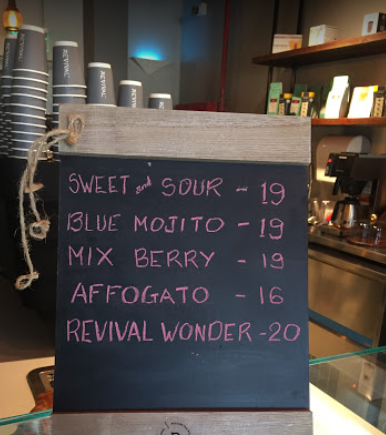 REVIVAL
SWEET and SOUR - 19
BLUE MOJITO - 19
MIX BERRY - 19
AFFOGATO - 16
REVIVAL WONDER - 20